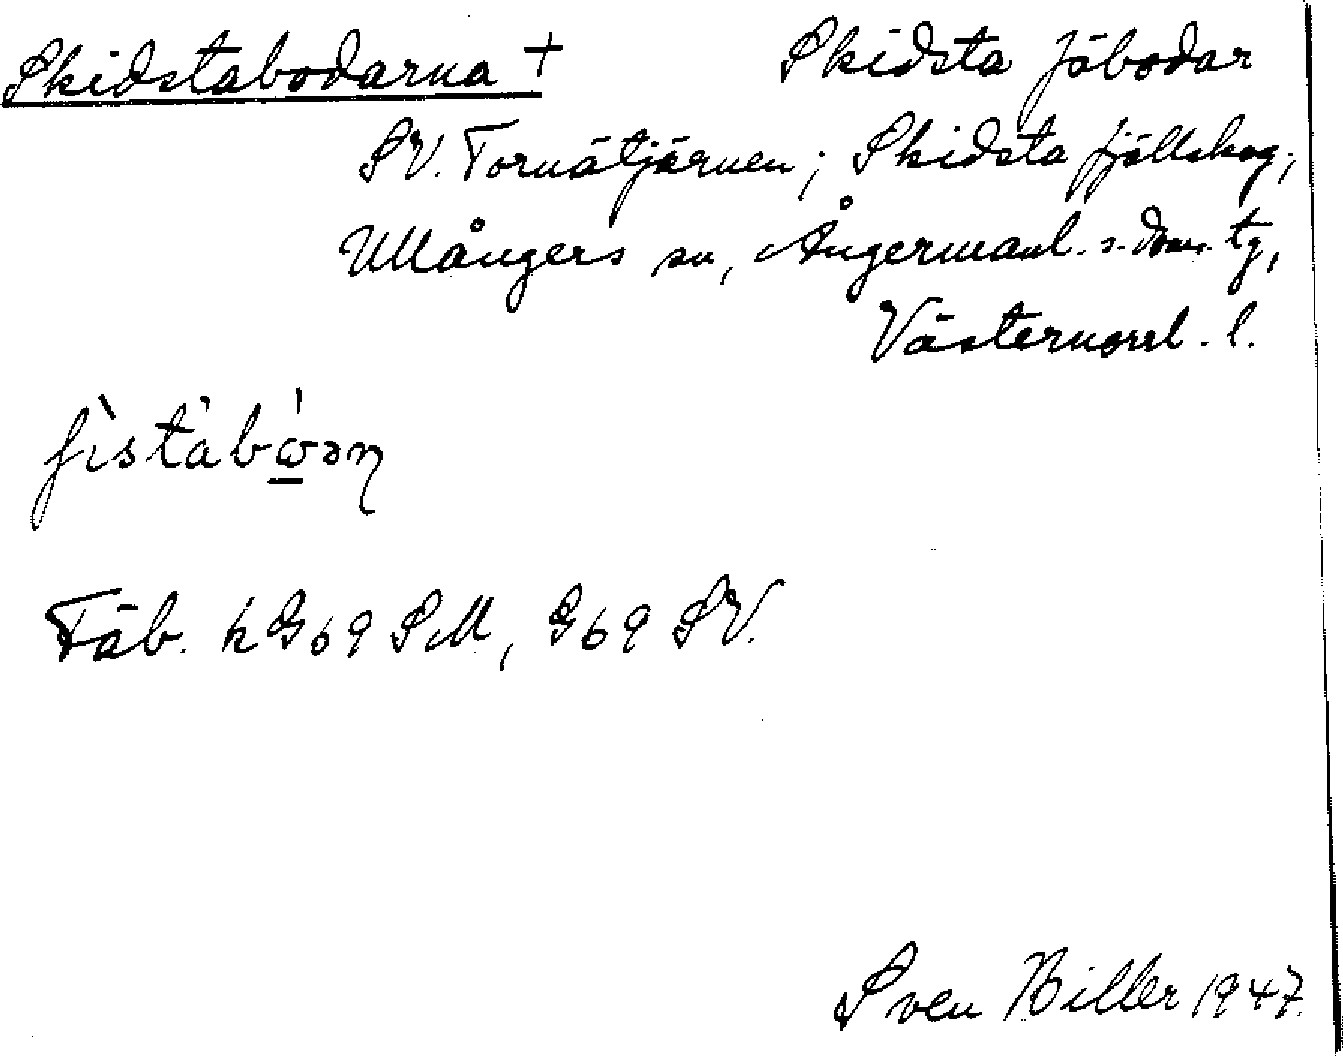 Skidstabodarna + Skidsta fäbodar
SV. Tornätjärnen; Skidsta fjällskog;
Ullångers sn, Ångermanl. s. dom. tg,
Västernorrl. l.
Fäb. k G69 SM, G69 SV.
Sven Biller 1947.